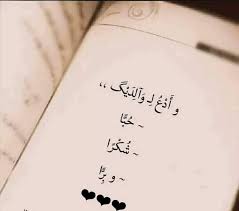 و أدْعُ لِـ وَآلِدَيْگ ،،
~ حُبًّا
~ شُكْرًا
~ و بِرًّا